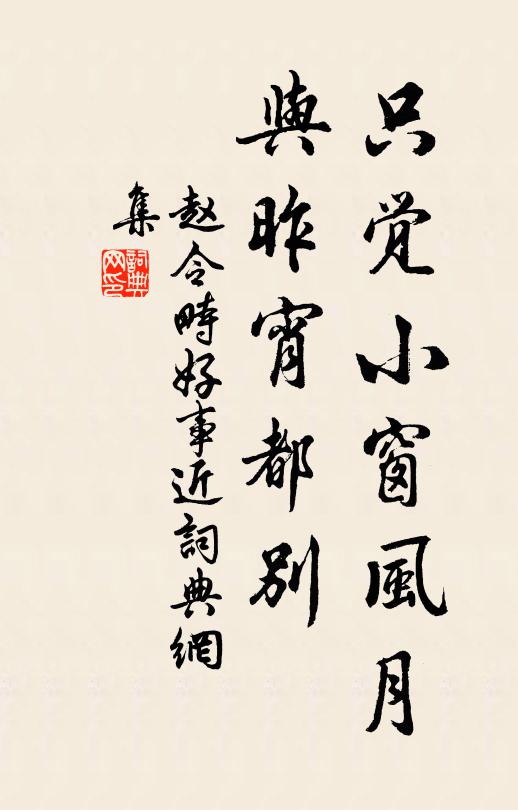 只觉小窗風月
與昨宵都别
赵令畤好事近詞典網
集
詞典
网印